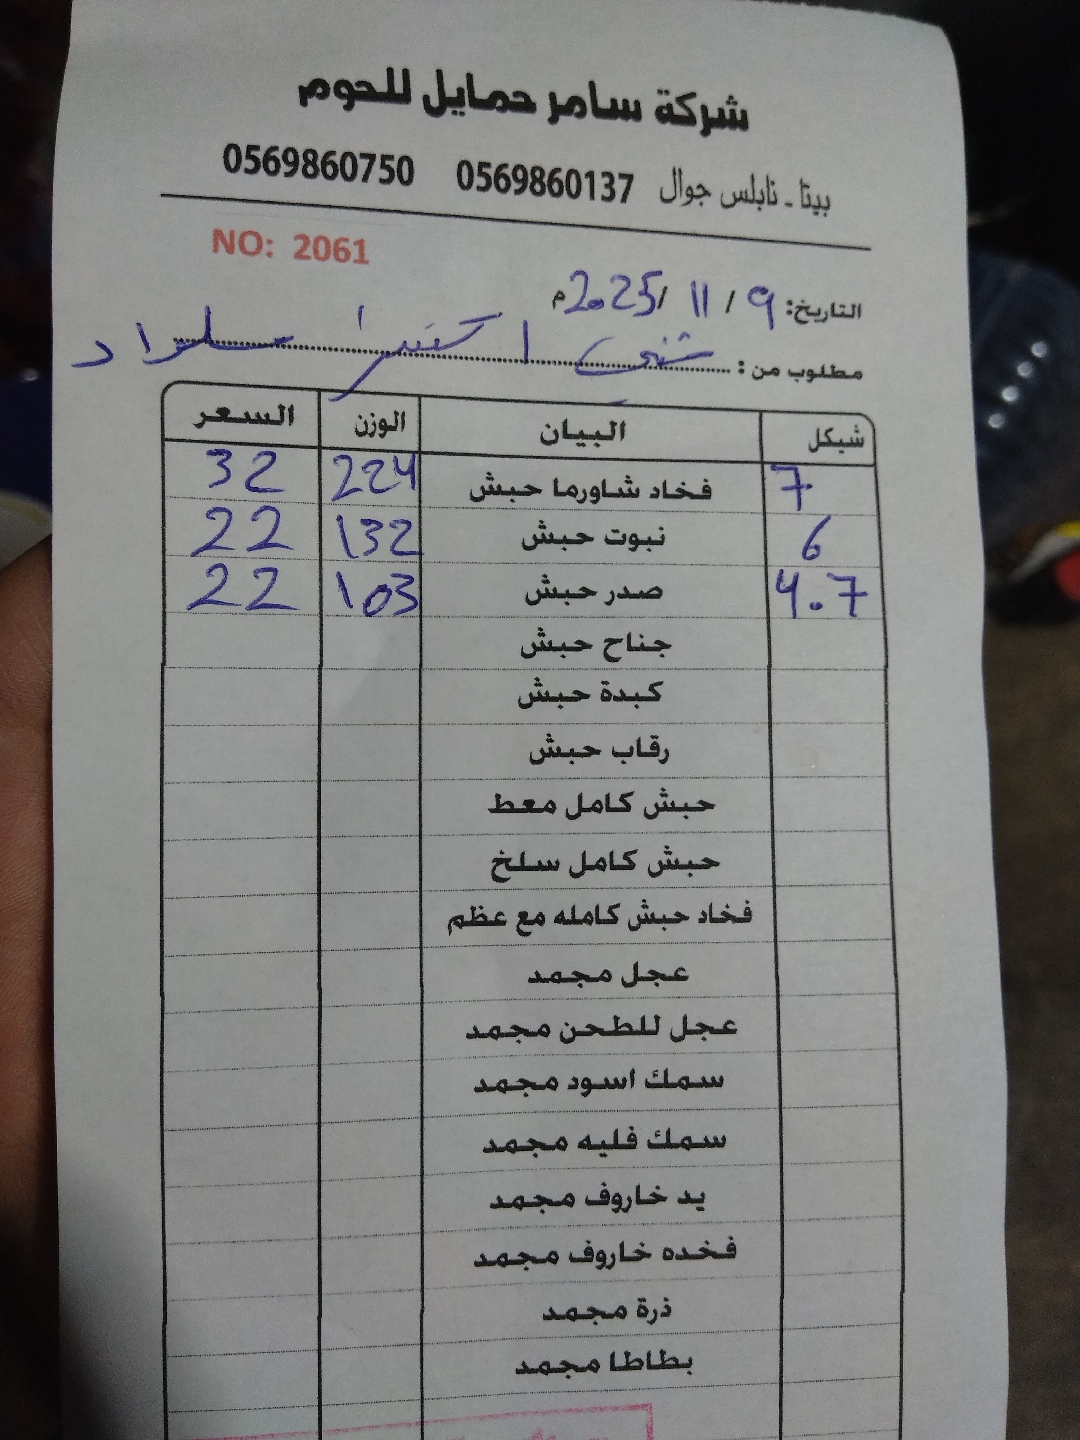 شركة سامر حمايل للحوم
بيتا - نابلس جوال 0569860137 0569860750
NO: 2061
التاريخ: 9 / 11 / 2025م
مطلوب من: سلواد
شيكل البيان الوزن السعر
7 فخاد شاورما حبش 224 32
6 نبوت حبش 132 22
4.7 صدر حبش 103 22
جناح حبش
كبدة حبش
رقاب حبش
حبش كامل معط
حبش كامل سلخ
فخاد حبش كامله مع عظم
عجل مجمد
عجل للطحن مجمد
سمك اسود مجمد
سمك فليه مجمد
يد خاروف مجمد
فخده خاروف مجمد
ذرة مجمد
بطاطا مجمد